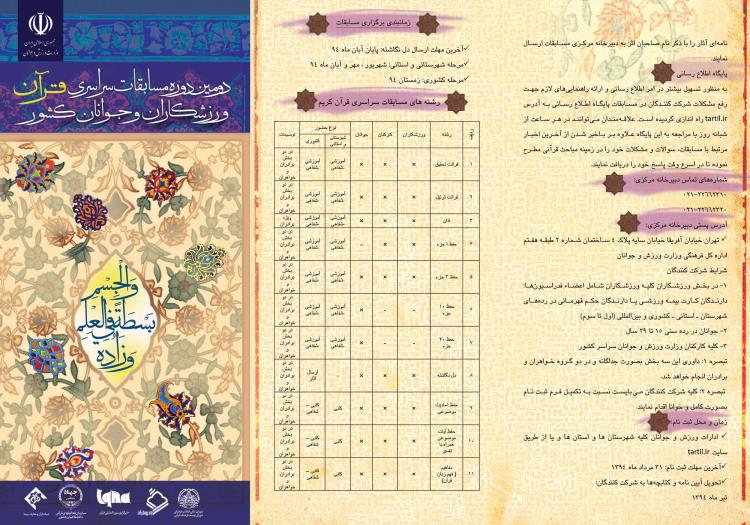 جمهوری اسلامی ایران
وزارت ورزش و جوانان
دومین دوره مسابقات سراسری قرآن
ورزشکاران و جوانان کشور
والجسم
بسطة في العلم
وزاده
iqna
زمانبندی برگزاری مسابقات
✓آخرین مهلت ارسال دل نگاشته: پایان آبان ماه ۹۴
✓مرحله شهرستانی و استانی: شهریور ، مهر و آبان ماه ۹۴
✓مرحله کشوری: زمستان ۹۴
رشته های مسابقات سراسری قرآن کریم
ردیف رشته ورزشکاران کارکنان جوانان نوع حضور توضیحات
شهرستانی و استانی کشوری
۱ قرائت تحقیق × × × آموزشی -شفاهی آموزشی -شفاهی در دو بخش برادران و خواهران
۲ قرائت ترتیل × × × آموزشی -شفاهی آموزشی -شفاهی در دو بخش برادران و خواهران
۳ اذان × × × آموزشی -شفاهی آموزشی -شفاهی ویژه برادران
۴ حفظ ۱ جزء × × - آموزشی -شفاهی آموزشی -شفاهی در دو بخش برادران و خواهران
۵ حفظ ۳ جزء × × × آموزشی -شفاهی آموزشی -شفاهی در دو بخش برادران و خواهران
۶ حفظ ۱۰ جزء - - × آموزشی -شفاهی آموزشی -شفاهی در دو بخش برادران و خواهران
۷ حفظ ۲۰ جزء - - × آموزشی -شفاهی آموزشی -شفاهی در دو بخش برادران و خواهران
۸ دل نگاشته × × × - ارسال آثار در دو بخش برادران و خواهران
۹ حفظ احادیث موضوعی × × × کتبی کتبی – شفاهی در دو بخش برادران و خواهران
۱۰ حفظ آیات موضوعی همراه با تفسیر × × × کتبی کتبی – شفاهی در دو بخش برادران و خواهران
۱۱ مفاهیم ( فهم زبان قرآن) × × × کتبی کتبی – شفاهی در دو بخش برادران و خواهران
نامه‌ای آثار را با ذکر نام صاحبان اثر به دبیرخانه مرکزی مسابقات ارسال
نمایند.
پایگاه اطلاع رسانی
به منظور تسهیل بیشتر در امر اطلاع رسانی و ارائه راهنمایی‌های لازم جهت
رفع مشکلات شرکت کنندگان در مسابقات پایگاه اطلاع رسانی به آدرس
tartil.ir راه اندازی گردیده است. علاقه‌مندان می‌توانند در هر ساعت از
شبانه روز با مراجعه به این پایگاه علاوه بر باخبر شدن از آخرین اخبار
مرتبط با مسابقات، سوالات و مشکلات خود را در زمینه مباحث قرآنی مطرح
نموده تا در اسرع وقت پاسخ خود را دریافت نمایند.
شماره‌های تماس دبیرخانه مرکزی:
۰۲۱-۲۲۶۶۲۳۱۰
۰۲۱-۲۲۶۶۲۲۲۰
آدرس پستی دبیرخانه مرکزی:
✓ تهران خیابان آفریقا خیابان سایه پلاک ۴ ساختمان شماره ۲ طبقه هفتم
اداره کل فرهنگی وزارت ورزش و جوانان
شرایط شرکت کنندگان
۱- در بخش ورزشکاران کلیه ورزشکاران شامل اعضاء فدراسیون‌ها،
دارندگان کارت بیمه ورزشی یا دارندگان حکم قهرمانی در رده‌های
شهرستان ـ استانی ـ کشوری و بین‌المللی (اول تا سوم)
۲- جوانان در رده سنی ۱۵ تا ۲۹ سال
۳- کلیه کارکنان وزارت ورزش و جوانان سراسر کشور
تبصره ۱: داوری این سه بخش بصورت جداگانه و در دو گروه خواهران و
برادران انجام خواهد شد.
تبصره ۲: کلیه شرکت کنندگان می‌بایست نسبت به تکمیل فرم ثبت نام
بصورت کامل و خوانا اقدام نمایند.
زمان و محل ثبت نام:
✓ ادارات ورزش و جوانان کلیه شهرستان ها و استان ها و یا از طریق
سایت tartil.ir
✓آخرین مهلت ثبت نام: ۳۱ مرداد ماه ۱۳۹۴
✓تحویل آیین نامه و کتابچه‌ها به شرکت کنندگان:
تیر ماه ۱۳۹۴